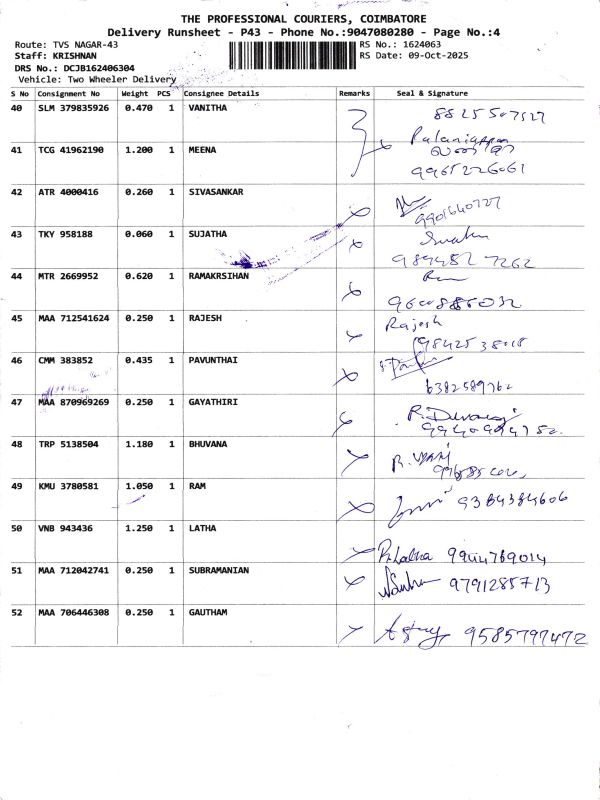 THE PROFESSIONAL COURIERS, COIMBATORE
Delivery Runsheet - P43 - Phone No.:9047080280 - Page No.:4
Route: TVS NAGAR-43 RS No.: 1624063
Staff: KRISHNAN RS Date: 09-Oct-2025
DRS No.: DCJB162406304
Vehicle: Two Wheeler Delivery
S No Consignment No Weight PCS Consignee Details Remarks Seal & Signature
40 SLM 379835926 0.470 1 VANITHA
41 TCG 41962190 1.200 1 MEENA
9965226061
42 ATR 4000416 0.260 1 SIVASANKAR
9901640727
43 TKY 958188 0.060 1 SUJATHA
44 MTR 2669952 0.620 1 RAMAKRSIHAN
45 MAA 712541624 0.250 1 RAJESH Rajesh
46 CMM 383852 0.435 1 PAVUNTHAI
47 MAA 870969269 0.250 1 GAYATHIRI
48 TRP 5138504 1.180 1 BHUVANA
49 KMU 3780581 1.050 1 RAM 9384384606
50 VNB 943436 1.250 1 LATHA
P.Latha 9944769014
51 MAA 712042741 0.250 1 SUBRAMANIAN 9791285713
52 MAA 706446308 0.250 1 GAUTHAM
9585797472